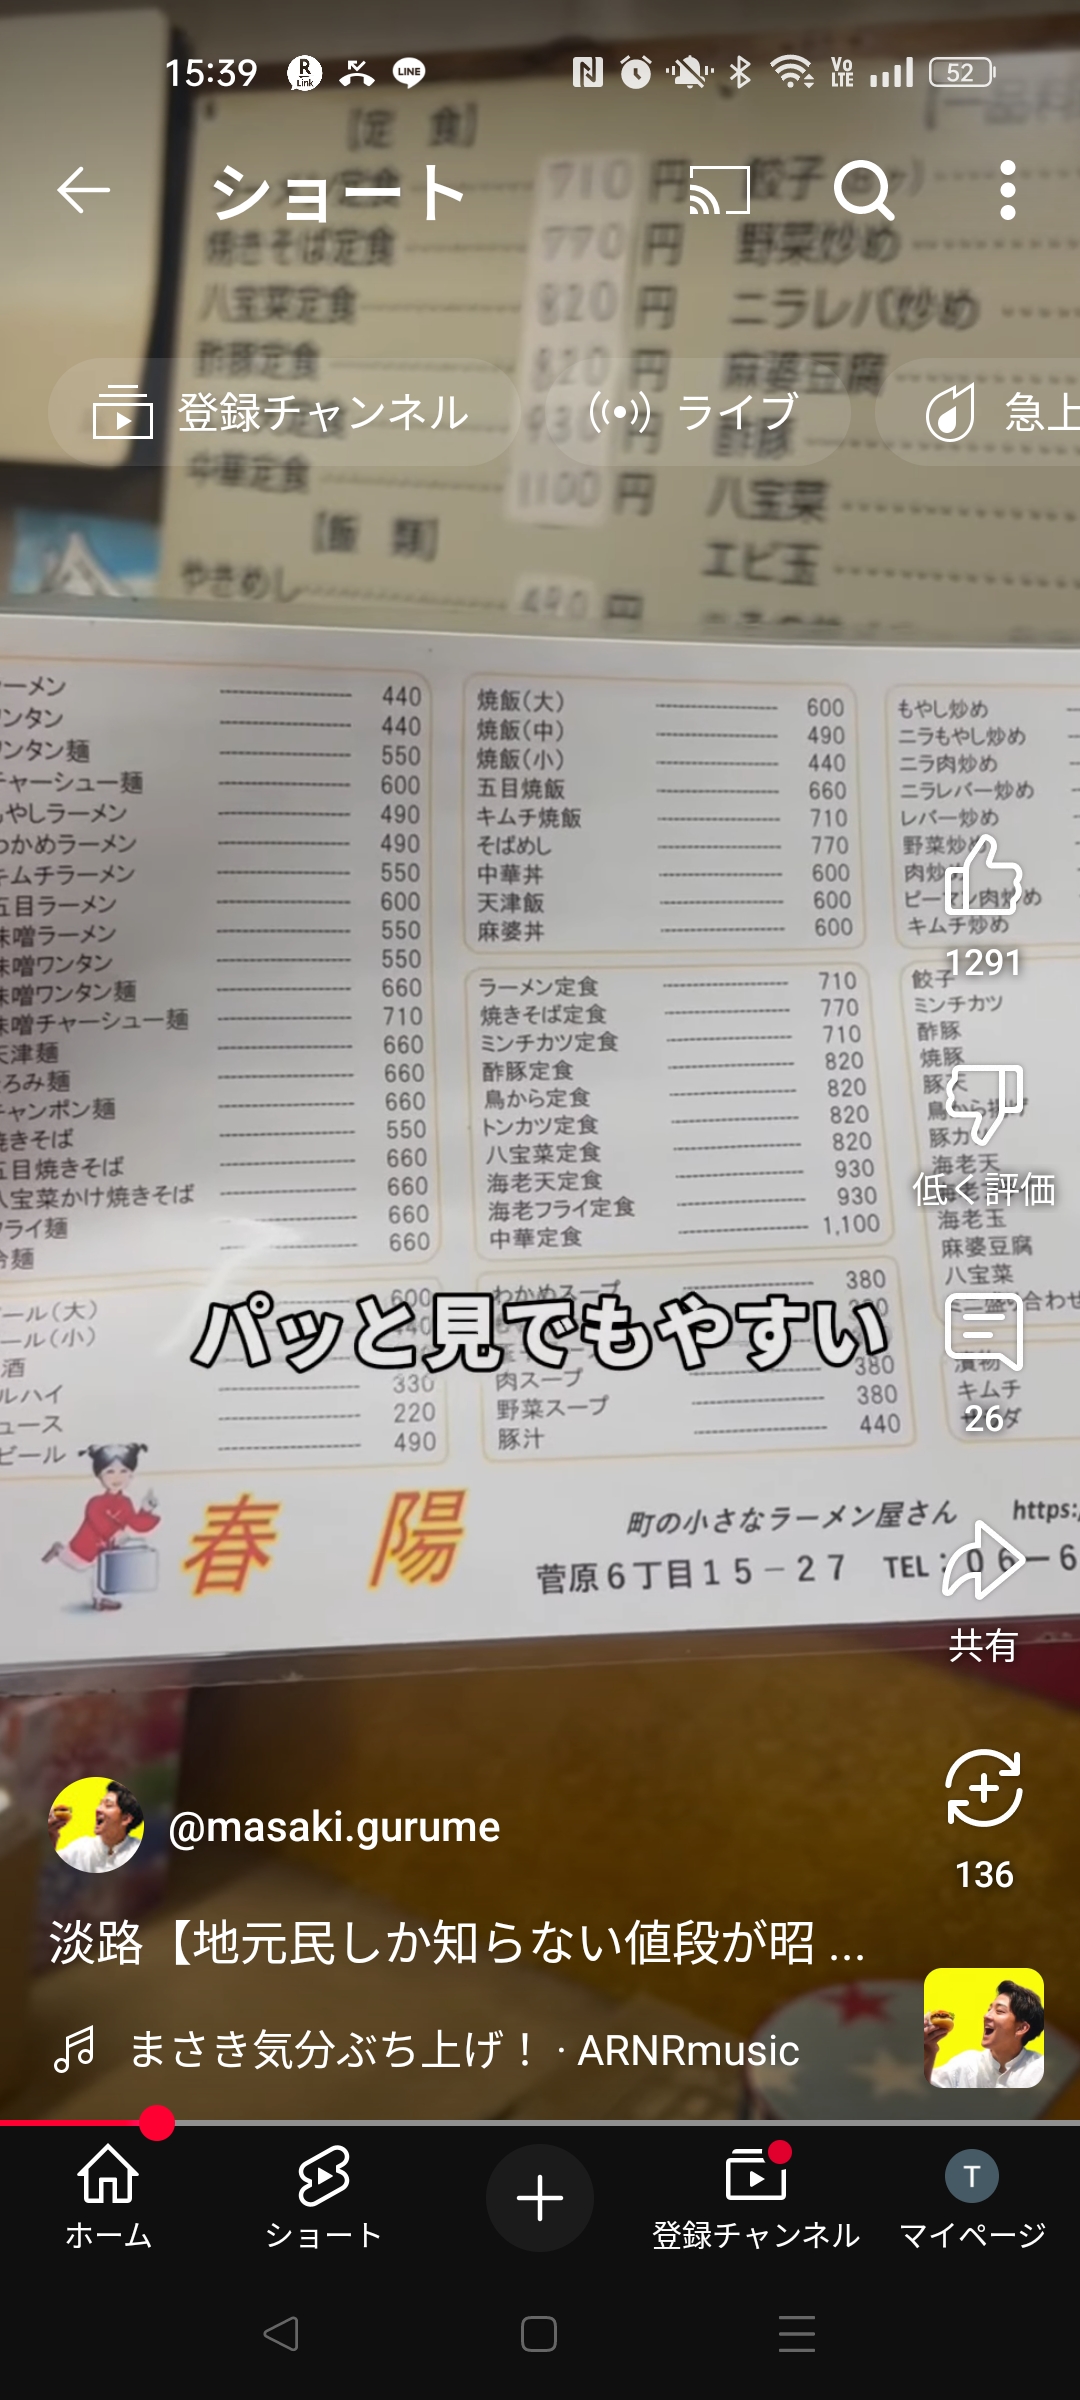 15:39
R Link
LINE
Vo LTE
52
[定 食]
710 円
餃子
ショート
焼きそば定食 770 円
野菜炒め
八宝菜定食 820 円
ニラレバ炒め
酢豚定食 820 円
麻婆豆腐
登録チャンネル
ライブ
急上
930
酢豚
中華定食 1100 円
八宝菜
[飯 類]
エビ玉
やきめし 480 円
ーメン 440
ンタン 440
ンタン麺 550
チャーシュー麺 600
やしラーメン 490
わかめラーメン 490
キムチラーメン 550
五目ラーメン 600
味噌ラーメン 550
味噌ワンタン 550
味噌ワンタン麺 660
味噌チャーシュー麺 710
天津麺 660
ろみ麺 660
チャンポン麺 660
焼きそば 550
五目焼きそば 660
八宝菜かけ焼きそば 660
フライ麺 660
冷麺 660
焼飯(大) 600
焼飯(中) 490
焼飯(小) 440
五目焼飯 660
キムチ焼飯 710
そばめし 770
中華丼 600
天津飯 600
麻婆丼 600
ラーメン定食 710
焼きそば定食 770
ミンチカツ定食 710
酢豚定食 820
鳥から定食 820
トンカツ定食 820
八宝菜定食 820
海老天定食 930
海老フライ定食 930
中華定食 1,100
もやし炒め
ニラもやし炒め
ニラ肉炒め
ニラレバー炒め
レバー炒め
野菜炒め
肉炒め
ピーマン肉炒め
キムチ炒め
餃子
ミンチカツ
酢豚
焼豚
豚天
鳥から揚げ
豚カツ
海老天
海老玉
麻婆豆腐
八宝菜
ール(大) 600
ール(小) 440
酒
ルハイ 330
ュース 220
ビール 490
わかめスープ 380
肉スープ 380
野菜スープ 380
豚汁 440
漬物
キムチ
パッと見でもやすい
1291
低く評価
26
共有
136
春 陽
町の小さなラーメン屋さん https:
菅原6丁目15-27 TEL:06-6
@masaki.gurume
淡路【地元民しか知らない値段が昭 ...
まさき気分ぶち上げ！ · ARNRmusic
ホーム
ショート
登録チャンネル
T
マイページ